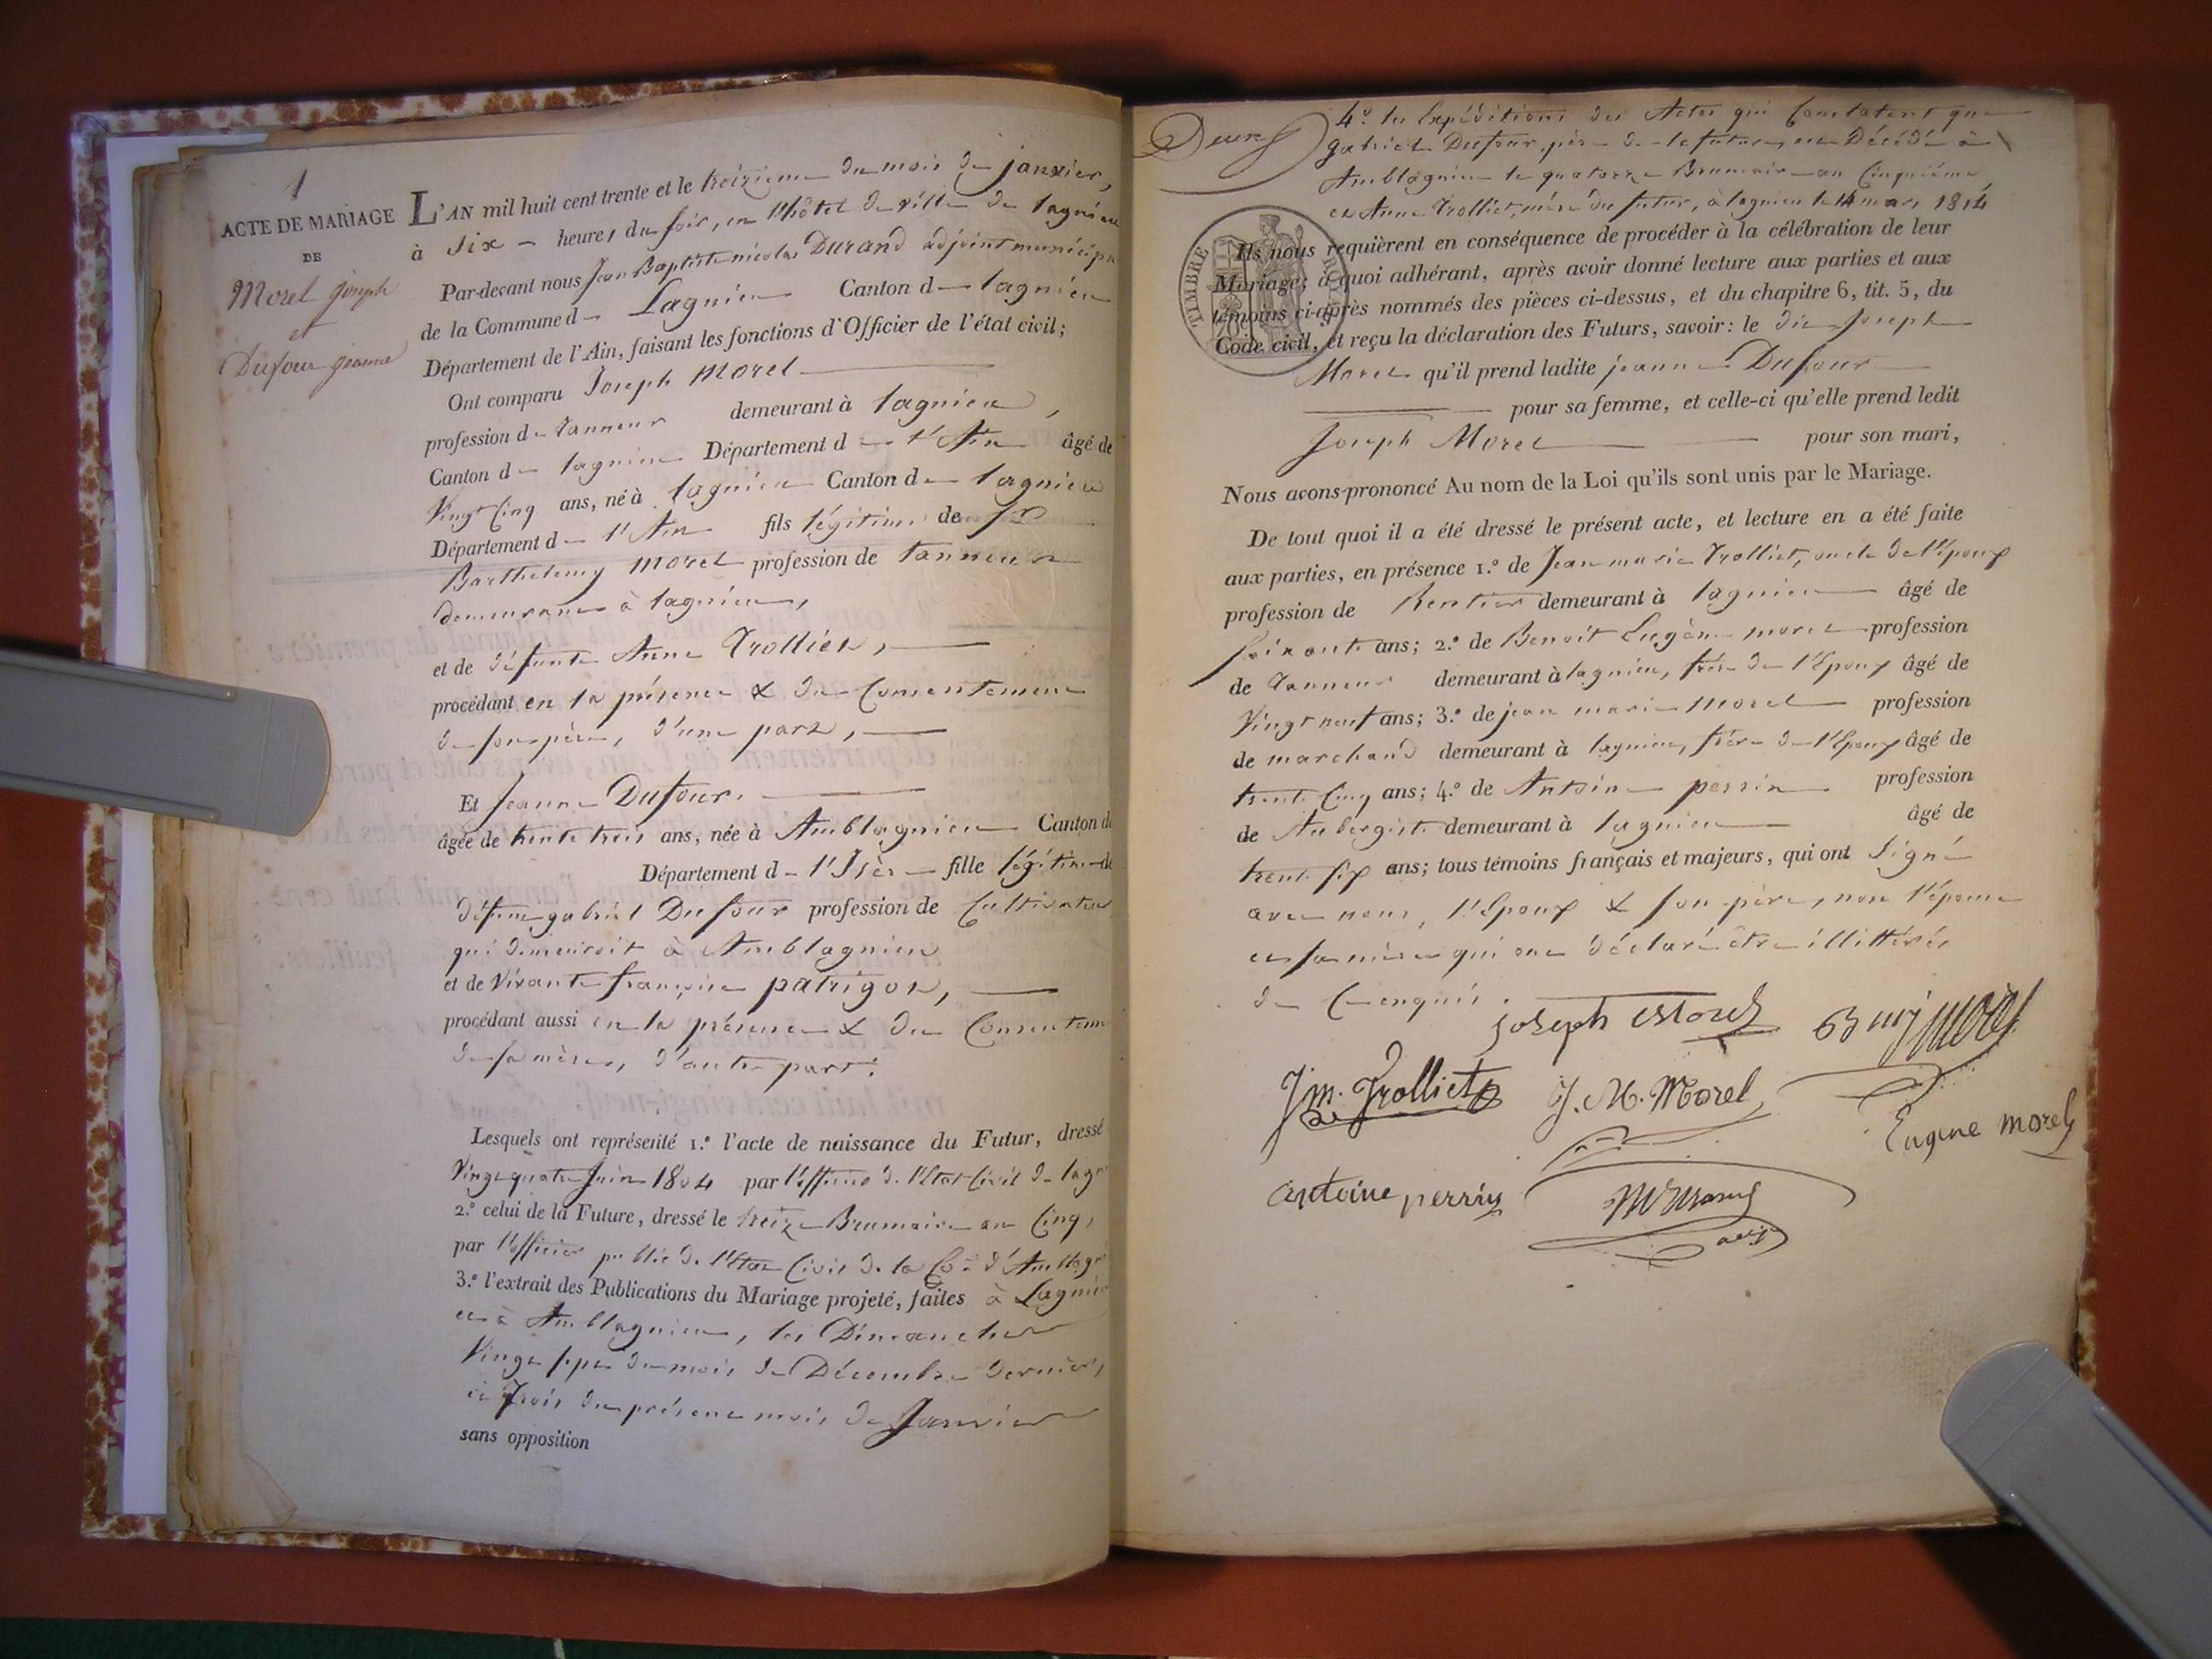 1
ACTE DE MARIAGE
DE
Morel joseph
et
Dufour jeanne
L'AN mil huit cent trente et le treizieme du mois de janvier,
à six heures du soir, en l'hôtel de ville de lagnieu
Par-devant nous Jean Baptiste nicolas Durand adjoint municipa
de la Commune d Lagnieu Canton d lagnieu
Département de l'Ain, faisant les fonctions d'Officier de l'état civil;
Ont comparu Joseph Morel
profession de tanneur demeurant à lagnieu,
Canton de lagnieu Département de l'Ain âgé de
Vingt Cinq ans, né à lagnieu Canton de lagnieu
Département de l'Ain fils légitime de Sr
Barthelemy Morel profession de tanneur
demeurant à lagnieu,
et de défunte Anne Trolliet,
procédant en la présence & du Consentement
de son père, d'une part,
Et Jeanne Dufour.
âgée de trente trois ans, née à Amblagnieu Canton de
Département de l'Isère fille légitime de
défunt gabriel Dufour profession de Cultivateur
qui demeuroit à Amblagnieu
et de Vivante françoise patrigot,
procédant aussi en la présence & du Consentem
de sa mère, d'autre part.
Lesquels ont représenté 1.º l'acte de naissance du Futur, dressé
Vingt quatre Juin 1804 par l'officier de l'Etat Civil de lagn
2.º celui de la Future, dressé le treize Brumaire an Cinq,
par l'officier public de l'Etat Civil de la Cne d'Amblagn
3.º l'extrait des Publications du Mariage projeté, faites à Lagnieu
et à Amblagnieu, les Dimanches
Vingt sept du mois de Décembre dernier,
et Trois du présent mois de Janvier
sans opposition
Deux
4º les Expéditions des Actes qui Constatent que
gabriel Dufour, père de la future, est Décédé à
Amblagnieu le quatorze Brumaire an Cinquième,
et Anne Trolliet, mère du futur, à lagnieu le 14 mars 1814
TIMBRE ROYAL
Ils nous requièrent en conséquence de procéder à la célébration de leur
Mariage; à quoi adhérant, après avoir donné lecture aux parties et aux
témoins ci-après nommés des pièces ci-dessus, et du chapitre 6, tit. 5, du
Code civil, et reçu la déclaration des Futurs, savoir: le dit Joseph
Morel qu'il prend ladite jeanne Dufour
pour sa femme, et celle-ci qu'elle prend ledit
Joseph Morel pour son mari,
Nous avons prononcé Au nom de la Loi qu'ils sont unis par le Mariage.
De tout quoi il a été dressé le présent acte, et lecture en a été faite
aux parties, en présence 1.º de Jean marie Trolliet, oncle de l'époux
profession de Rentier demeurant à lagnieu âgé de
soixante ans; 2.º de Benoit Eugène morel profession
de Tanneur demeurant à lagnieu, frère de l'Epoux âgé de
Vingt neuf ans; 3.º de jean marie Morel profession
de marchand demeurant à lagnieu, frère de l'Epoux âgé de
trente Cinq ans; 4.º de Antoine perrin profession
de Aubergiste demeurant à lagnieu âgé de
trente six ans; tous témoins français et majeurs, qui ont signé
avec nous, l'Epoux & son père, non l'épouse
et sa mère qui ont déclaré être illittérées
de Ce enquis.
joseph Morel
Bmy Morel
Jm. Trolliet
J. M. Morel
Eugene morel
antoine perrin
Durand
adj